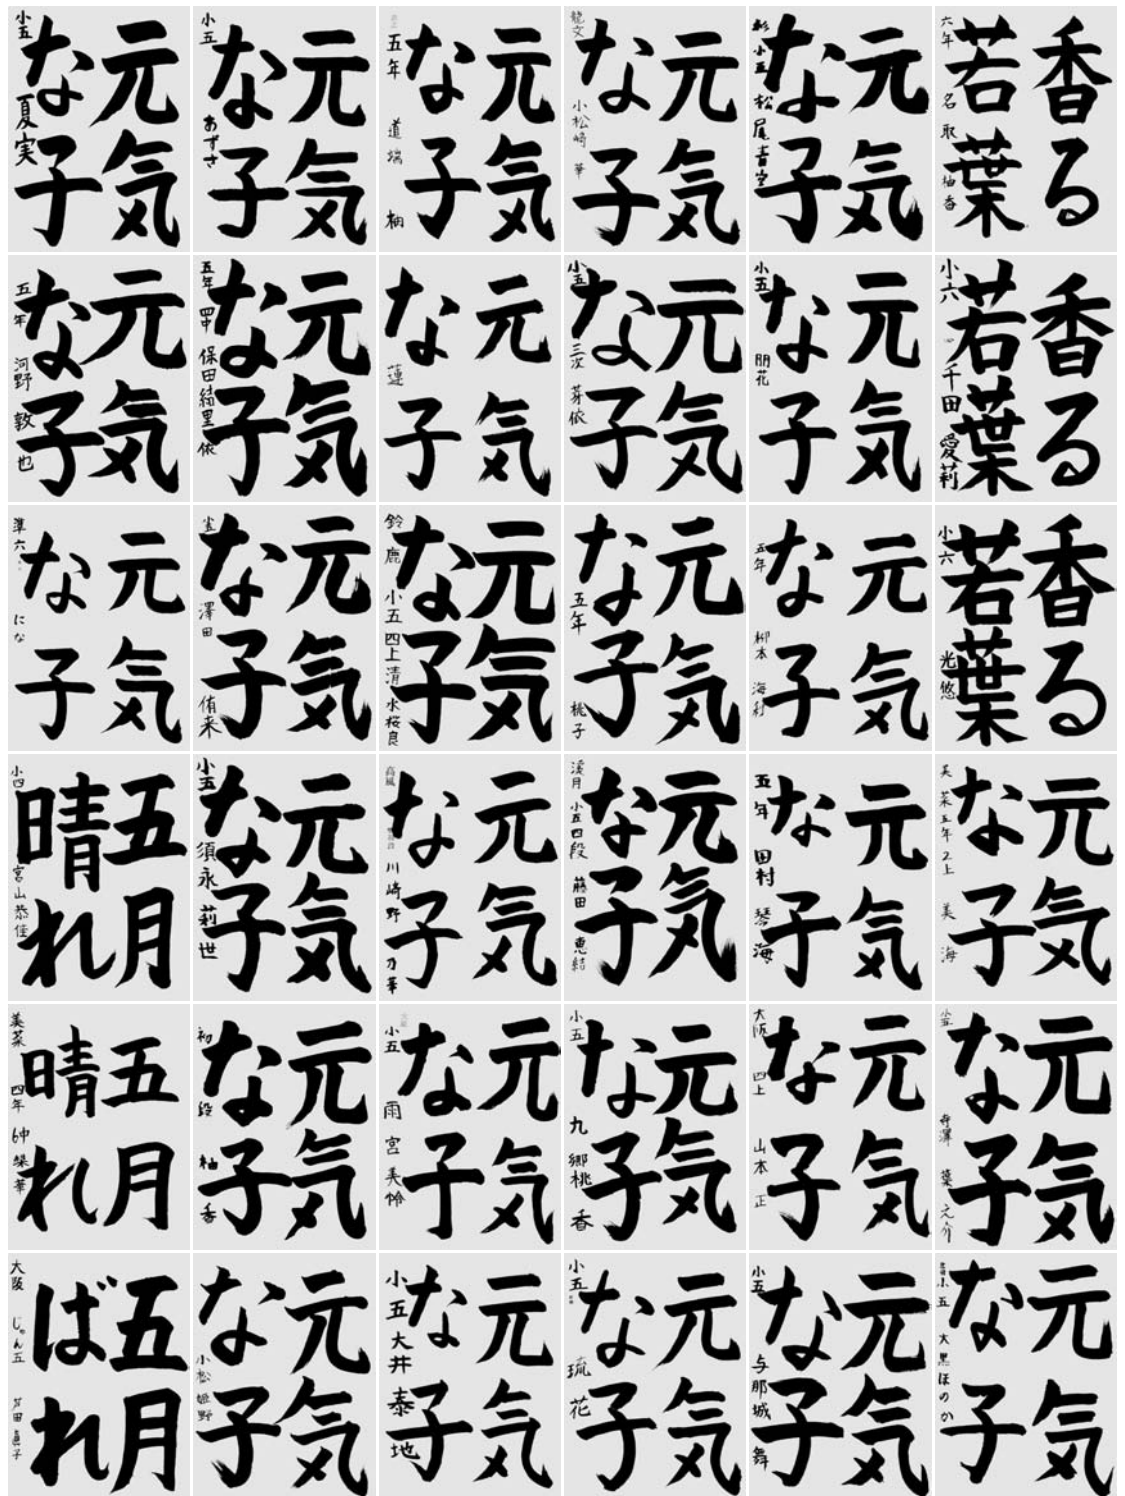 元気な子
小五 夏実
元気な子
小五 あずさ
元気な子
五年 道端 柄
元気な子
龍文 小松崎 華
元気な子
小五 松尾青空
香る若葉
六年 名取 柚香
元気な子
五年 河野 敦也
元気な子
五年 四中 保田結里依
元気な子
蓮
元気な子
小五 三次 芽依
元気な子
小五 朋花
香る若葉
小六 千田 愛莉
元気な子
準六 にな
元気な子
澤田 侑来
元気な子
鈴鹿 小五 四上 清水桜良
元気な子
五年 桃子
元気な子
五年 柳本
香る若葉
小六 光悠
五月晴れ
小四 宮山恭佳
元気な子
小五 須永 莉世
元気な子
高風 川崎野乃華
元気な子
溪月 小五四段 藤田 恵結
元気な子
五年 田村 琴海
元気な子
英菜五年 2上 美海
五月晴れ
美菜 四年
元気な子
初段 柚香
元気な子
小五 雨宮 美怜
元気な子
小五 九郷桃香
元気な子
大阪 四上 山本 正
元気な子
小五 寺澤 葉之介
五月ばれ
大阪 じゅん五 芦田眞子
元気な子
小松 姫野
元気な子
小五 大井 泰地
元気な子
小五 琉花
元気な子
小五 与那城 舞
元気な子
小五 大黒ほのか